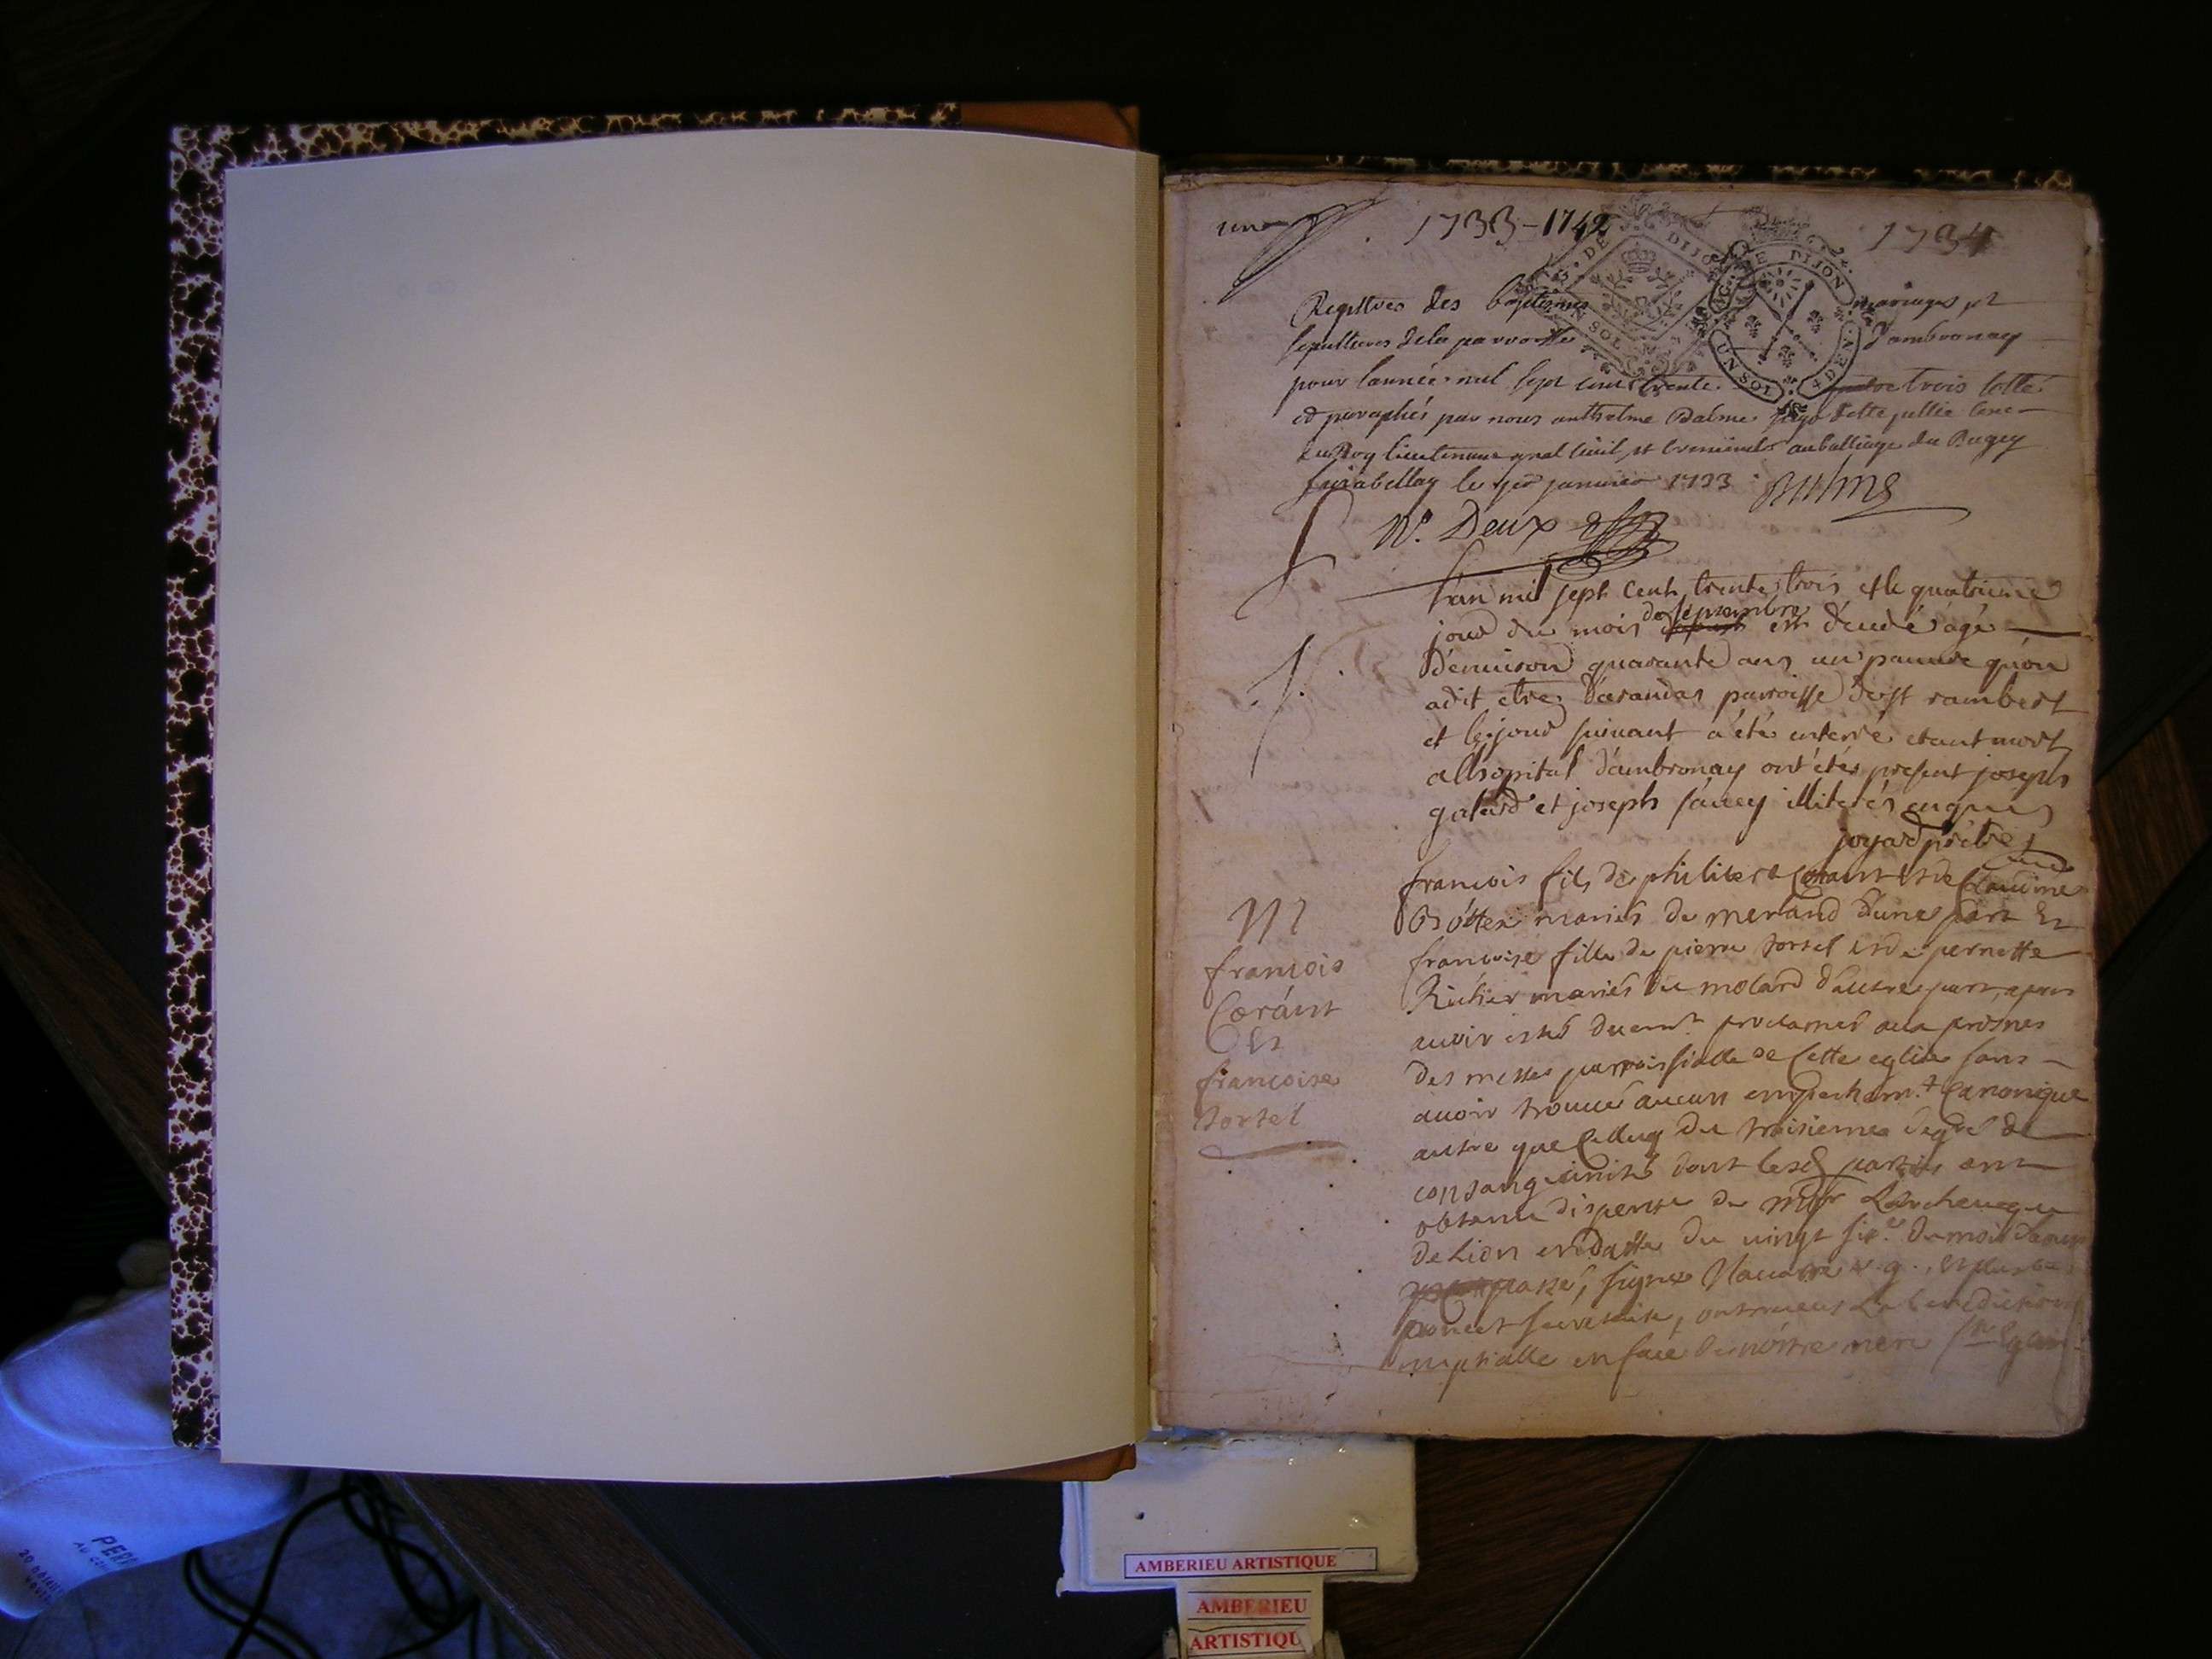 une
1733-1742
1734
G. DE DIJON
UN SOL
G. DE DIJON
UN SOL 4 DEN.
Registres des baptemes mariages et
sepultures de la parroisse d'ambronay
pour l'année mil sept cent trente trois cottés
et paraphés par nous anthelme Balme
du Roy lieutenant gnal civil et criminel au balliage du Bugey
a bellay le janvier 1733 Balme
N.º Deux
L'an mil sept cent trente trois et le quatrieme
jour du mois de septembre est décédé agé
d'environ quarante ans un pauvre qu'on
a dit etre d'arandas parroisse de st rambert
et le jour suivant a été enterré etant mort
a l'hopital d'ambronay ont étés present joseph
galard et joseph illiterés enquis
joyard prêtre
S.
M
francois
Corânt
Et
francoise
tortel
francois fils de philibert Corant et de Claudine
mariés de merland d'une part Et
francoise fille de pierre tortel et de pernette
mariés du molard d'autre part, apres
avoir estés duemt proclamés aux prosnes
des messes parroissialle de Cette eglise sans
avoir trouué aucun empecham.t Canonique
autre que Celluy du troisieme degré de
consanguinité dont lesd parties ont
obtenu dispense de mgr L'archeuque
de Lion en datte du vingt six.e du mois
passé, signé
secretaire, ont receus La benediction
nuptialle en face de nôtre mere ste Eglise
PERR
AMBERIEU ARTISTIQUE
AMBERIEU
ARTISTIQU